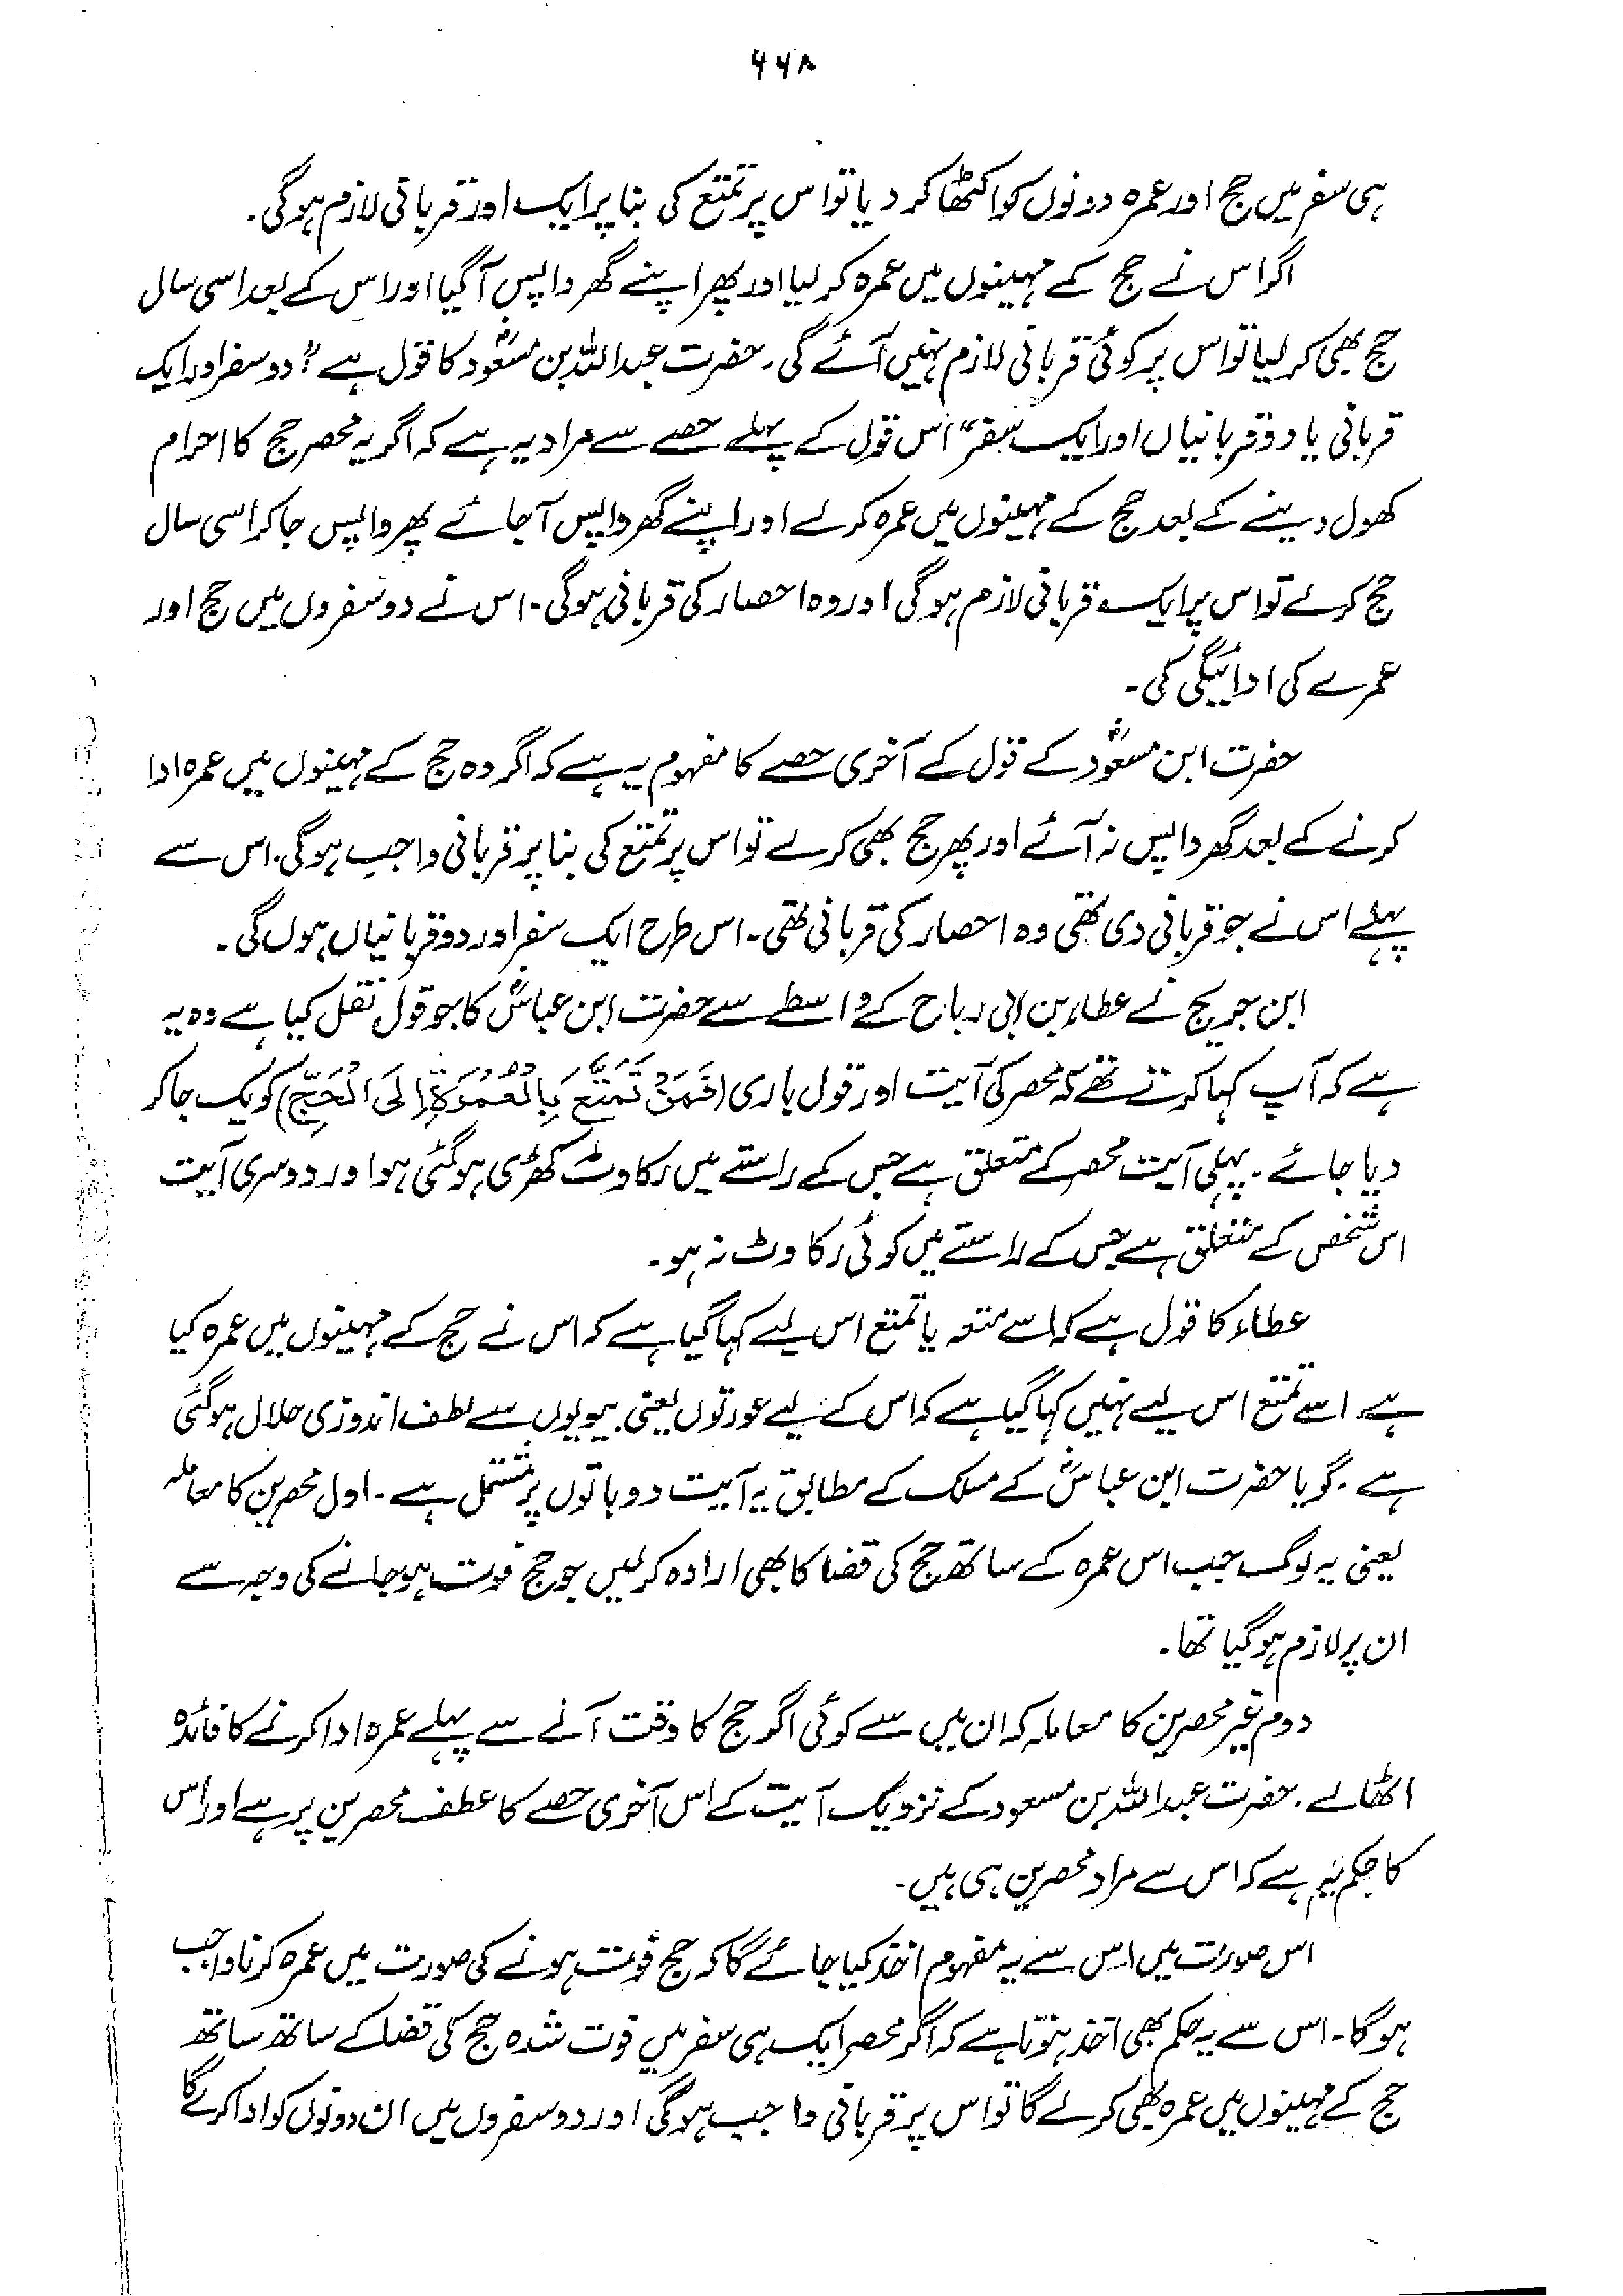 ۶۶۸
ہی سفر میں حج اور عمرہ دونوں کو اکٹھا کر دیا تو اس پر تمتع کی بنا پر ایک اور قربانی لازم ہوگی۔
اگر اس نے حج کے مہینوں میں عمرہ کر لیا اور پھر اپنے گھر واپس آگیا اور اس کے بعد اسی سال
حج بھی کر لیا تو اس پر کوئی قربانی لازم نہیں آئے گی۔ حضرت عبداللہ بن مسعودؓ کا قول ہے "دو سفر اور ایک
قربانی یا دو قربانیاں اور ایک سفر" اس قول کے پہلے حصے سے مراد یہ ہے کہ اگر یہ محصر حج کا احرام
کھول دینے کے بعد حج کے مہینوں میں عمرہ کرلے اور اپنے گھر واپس آجائے پھر واپس جا کر اسی سال
حج کرلے تو اس پر ایک قربانی لازم ہوگی اور وہ احصار کی قربانی ہوگی۔ اس نے دو سفروں میں حج اور
عمرے کی ادائیگی کی۔
حضرت ابن مسعودؓ کے قول کے آخری حصے کا مفہوم یہ ہے کہ اگر وہ حج کے مہینوں میں عمرہ ادا
کرنے کے بعد گھر واپس نہ آئے اور پھر حج بھی کرلے تو اس پر تمتع کی بنا پر قربانی واجب ہوگی۔ اس سے
پہلے اس نے جو قربانی دی تھی وہ احصار کی قربانی تھی۔ اس طرح ایک سفر اور دو قربانیاں ہوں گی۔
ابن جریج نے عطاء بن ابی رباح کے واسطے سے حضرت ابن عباسؓ کا جو قول نقل کیا ہے وہ یہ
ہے کہ آپ کہا کرتے تھے کہ محصر کی آیت اور قول باری (فَمَنْ تَمَتَّعَ بِالْعُمْرَةِ إِلَى الْحَجِّ) کو یک جا کر
دیا جائے۔ پہلی آیت محصر کے متعلق ہے جس کے راستے میں رکاوٹ کھڑی ہوگئی ہو اور دوسری آیت
اس شخص کے متعلق ہے جس کے راستے میں کوئی رکاوٹ نہ ہو۔
عطاء کا قول ہے کہ اسے متعہ یا تمتع اس لیے کہا گیا ہے کہ اس نے حج کے مہینوں میں عمرہ کیا
ہے اسے تمتع اس لیے نہیں کہا گیا ہے کہ اس کے لیے عورتوں یعنی بیویوں سے لطف اندوزی حلال ہوگئی
ہے۔ گویا حضرت ابن عباسؓ کے مسلک کے مطابق یہ آیت دو باتوں پر مشتمل ہے۔ اول محصرین کا معاملہ
یعنی یہ لوگ جب اس عمرہ کے ساتھ حج کی قضا کا بھی ارادہ کرلیں جو حج فوت ہوجانے کی وجہ سے
ان پر لازم ہوگیا تھا۔
دوم غیر محصرین کا معاملہ کہ ان میں سے کوئی اگر حج کا وقت آنے سے پہلے عمرہ ادا کرنے کا فائدہ
اٹھالے۔ حضرت عبداللہ بن مسعود کے نزدیک آیت کے اس آخری حصے کا عطف محصرین پر ہے اور اس
کا حکم یہ ہے کہ اس سے مراد محصرین ہی ہیں۔
اس صورت میں اس سے یہ مفہوم اخذ کیا جائے گا کہ حج فوت ہونے کی صورت میں عمرہ کرنا واجب
ہوگا۔ اس سے یہ حکم بھی اخذ ہوتا ہے کہ اگر محصر ایک ہی سفر میں فوت شدہ حج کی قضا کے ساتھ ساتھ
حج کے مہینوں میں عمرہ بھی کرلے گا تو اس پر قربانی واجب ہوگی اور دو سفروں میں ان دونوں کو ادا کرے گا